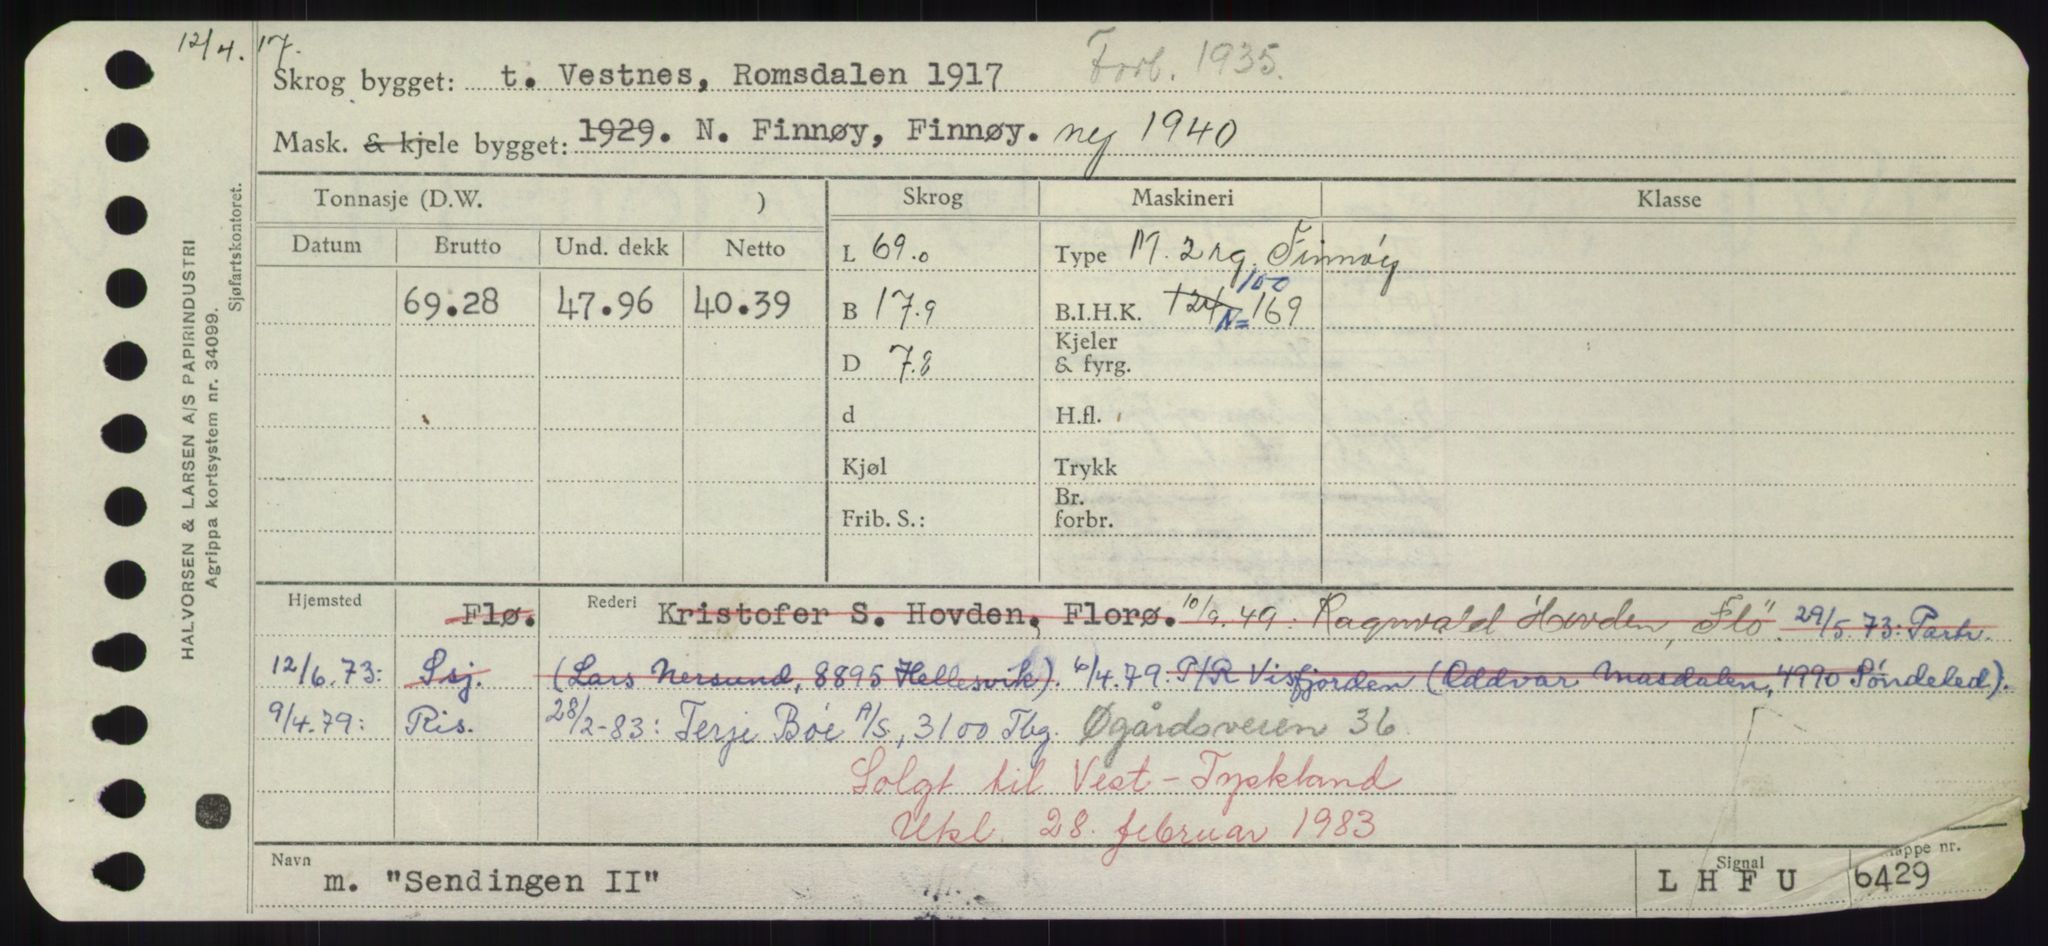 12/4. 17.
Skrog bygget: t. Vestnes, Romsdalen 1917 Forb. 1935.
Mask. & kjele bygget: 1929. N. Finnøy, Finnøy. ny 1940
Tonnasje (D.W. ) Skrog Maskineri Klasse
Datum Brutto Und. dekk Netto L 69.0 Type M. 2 rg. Finnøy
100
69.28 47.96 40.39 B 17.9 B.I.H.K. 124 N= 169
D 7.8 Kjeler & fyrg.
d H.fl.
Kjøl Trykk
Frib. S.: Br. forbr.
Hjemsted Flø. Rederi Kristofer S. Hovden, Florø. 10/9. 49: Ragnvald Hovden, Flö. 29/5. 73: Partr.
12/6. 73: Ssj. (Lars Nersund, 8895 Hellesvik). 6/4. 79: P/R Visfjorden (Oddvar Masdalen, 4990 Söndeled).
9/4. 79: Ris. 28/2-83: Terje Böe A/S, 3100 Tbg. Øgårdsveien 36
Solgt til Vest-Tyskland
Utkl. 28. februar 1983
Navn m. "Sendingen II" Signal LHFU Mappe nr. 6429
HALVORSEN & LARSEN A/S PAPIRINDUSTRI
Agrippa kortsystem nr. 34099.
Sjøfartskontoret.